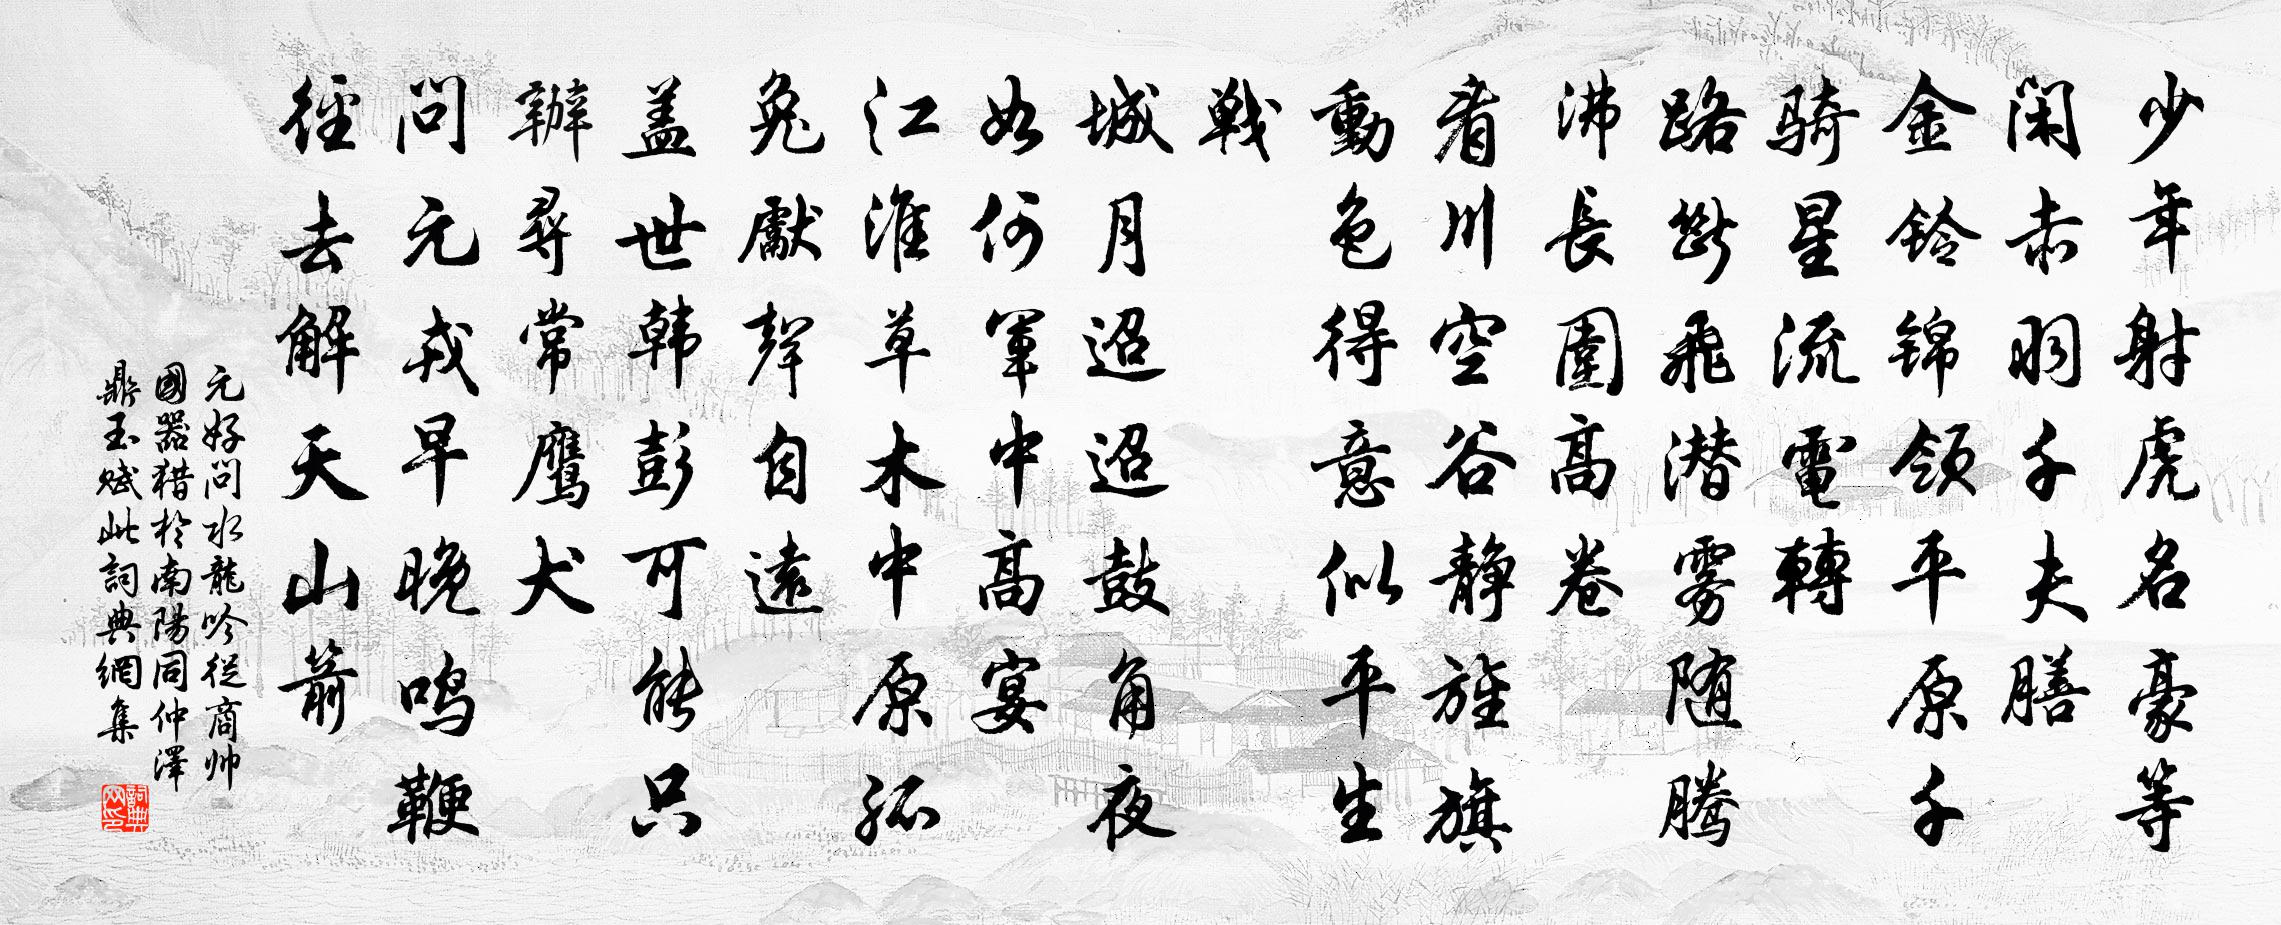 少年射虎名豪等
閑赤羽千夫膳
金铃锦领平原千
骑星流電轉
路断飛潜雾随腾
沸長圍高卷
看川空谷静旌旗
動色得意似平生
戰
城月迢迢鼓角夜
如何軍中高宴
江淮草木中原狐
兔獻聲自遠
盖世韩彭可能只
辦尋常鷹犬
問元戎早晚鸣鞭
徑去解天山箭
元好問水龍吟從商帅
國器猎於南陽同仲澤
鼎玉赋此詞典網集
詞典网印